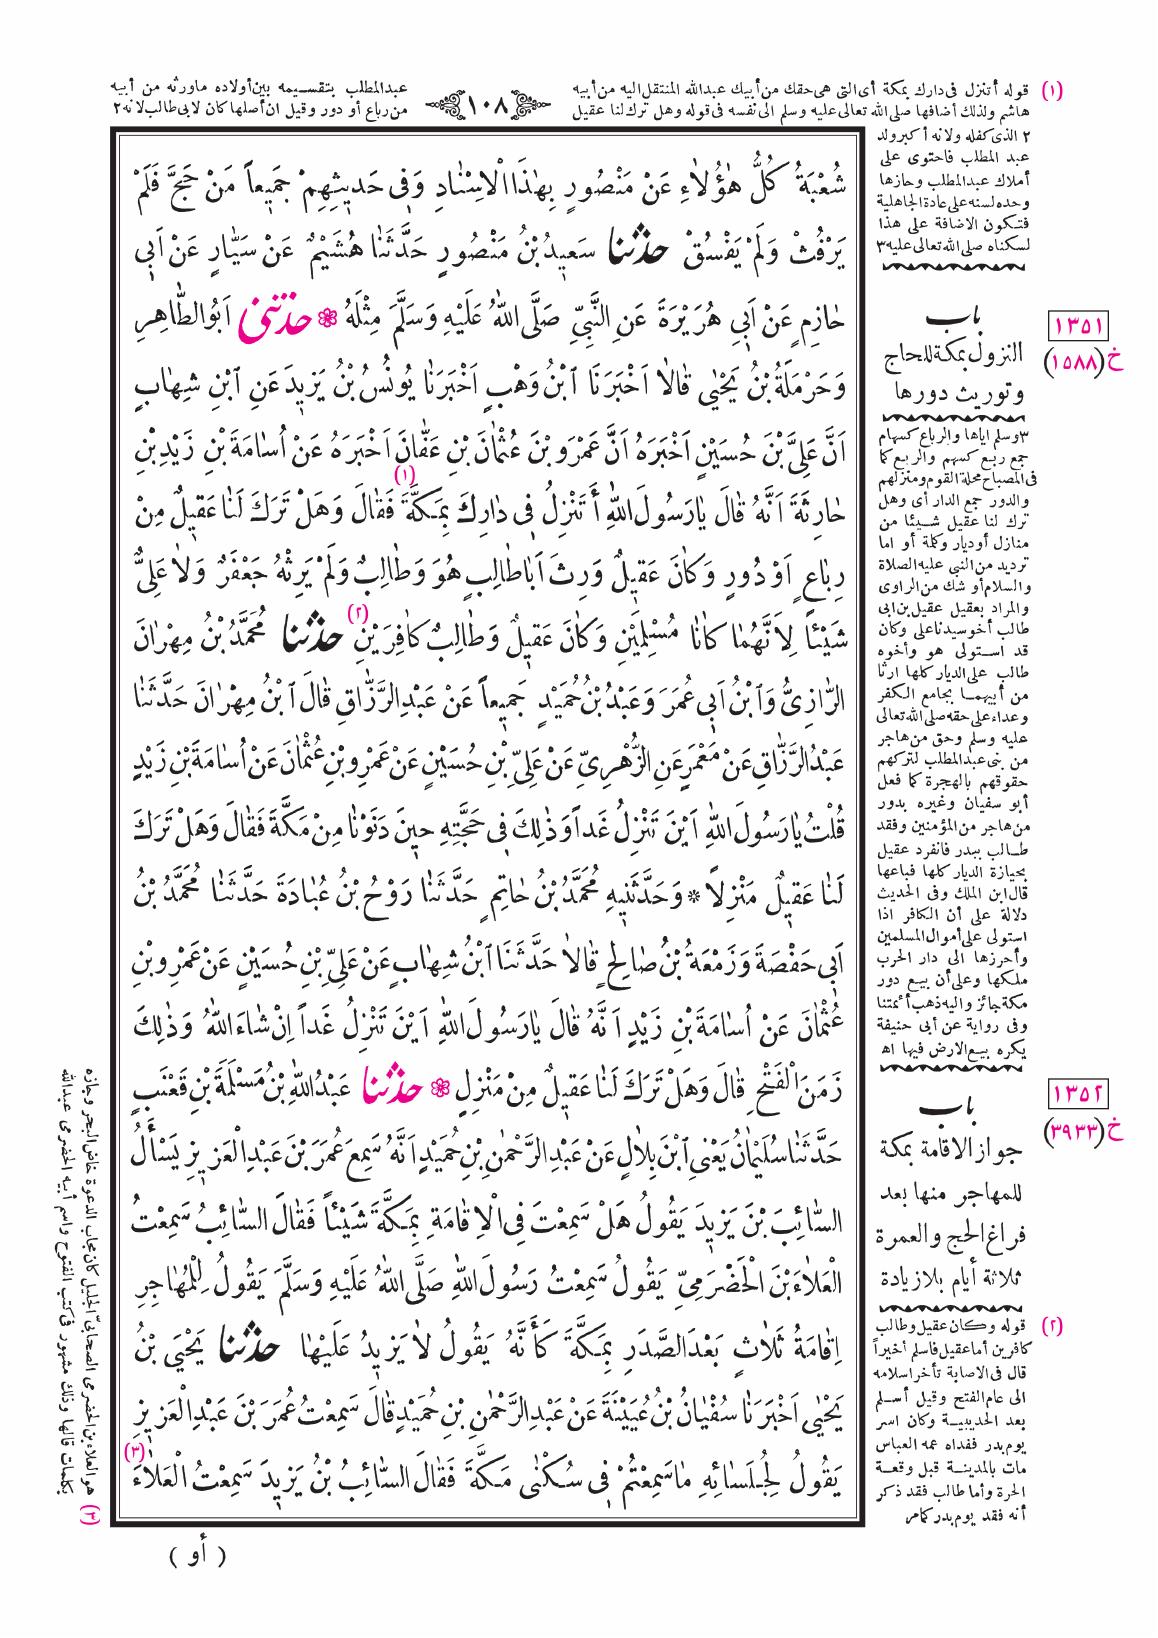 (١) قوله أتنزل فى دارك بمكة أى التى هى حقك من أبيك عبدالله المنتقل اليه من أبيه
هاشم ولذلك أضافها صلى الله تعالى عليه وسلم الى نفسه فى قوله وهل ترك لنا عقيل
١٠٨
عبدالمطلب بتقسيمه بين أولاده ماورثه من أبيه
من رباع أو دور وقيل ان أصلها كان لابى طالب لانه ٢
٢ الذى كفله ولانه أكبر ولد
عبد المطلب فاحتوى على
أملاك عبدالمطلب وحازها
وحده لسنه على عادة الجاهلية
فتكون الاضافة على هذا
لسكناه صلى الله تعالى عليه ٣
شُعْبَةُ كُلُّ هٰؤُلَاءِ عَنْ مَنْصُورٍ بِهٰذَا الْاِسْنَادِ وَفِى حَدِيثِهِمْ جَمِيعاً مَنْ حَجَّ فَلَمْ
يَرْفُثْ وَلَمْ يَفْسُقْ حدثنا سَعِيدُ بْنُ مَنْصُورٍ حَدَّثَنَا هُشَيْمٌ عَنْ سَيَّارٍ عَنْ اَبِى
حَازِمٍ عَنْ اَبِى هُرَيْرَةَ عَنِ النَّبِىِّ صَلَّى اللهُ عَلَيْهِ وَسَلَّمَ مِثْلَهُ ❁ حدثنى اَبُو الطَّاهِرِ
وَحَرْمَلَةُ بْنُ يَحْيٰى قَالَا اَخْبَرَنَا ابْنُ وَهْبٍ اَخْبَرَنَا يُونُسُ بْنُ يَزِيدَ عَنِ ابْنِ شِهَابٍ
اَنَّ عَلِىَّ بْنَ حُسَيْنٍ اَخْبَرَهُ اَنَّ عَمْرَو بْنَ عُثْمَانَ بْنِ عَفَّانَ اَخْبَرَهُ عَنْ اُسَامَةَ بْنِ زَيْدِ بْنِ
حَارِثَةَ اَنَّهُ قَالَ يَارَسُولَ اللهِ أَتَنْزِلُ فِى دَارِكَ بِمَكَّةَ (١) فَقَالَ وَهَلْ تَرَكَ لَنَا عَقِيلٌ مِنْ
رِبَاعٍ اَوْ دُورٍ وَكَانَ عَقِيلٌ وَرِثَ اَبَا طَالِبٍ هُوَ وَطَالِبٌ وَلَمْ يَرِثْهُ جَعْفَرٌ وَلَا عَلِىٌّ
شَيْئًا لِاَنَّهُمَا كَانَا مُسْلِمَيْنِ وَكَانَ عَقِيلٌ وَطَالِبٌ كَافِرَيْنِ (٢) حدثنا مُحَمَّدُ بْنُ مِهْرَانَ
الرَّازِىُّ وَابْنُ اَبِى عُمَرَ وَعَبْدُ بْنُ حُمَيْدٍ جَمِيعاً عَنْ عَبْدِ الرَّزَّاقِ قَالَ ابْنُ مِهْرَانَ حَدَّثَنَا
عَبْدُ الرَّزَّاقِ عَنْ مَعْمَرٍ عَنِ الزُّهْرِىِّ عَنْ عَلِىِّ بْنِ حُسَيْنٍ عَنْ عَمْرِو بْنِ عُثْمَانَ عَنْ اُسَامَةَ بْنِ زَيْدٍ
قُلْتُ يَارَسُولَ اللهِ اَيْنَ تَنْزِلُ غَداً وَذٰلِكَ فِى حَجَّتِهِ حِينَ دَنَوْنَا مِنْ مَكَّةَ فَقَالَ وَهَلْ تَرَكَ
لَنَا عَقِيلٌ مَنْزِلاً * وَحَدَّثَنِيهِ مُحَمَّدُ بْنُ حَاتِمٍ حَدَّثَنَا رَوْحُ بْنُ عُبَادَةَ حَدَّثَنَا مُحَمَّدُ بْنُ
اَبِى حَفْصَةَ وَزَمْعَةُ بْنُ صَالِحٍ قَالَا حَدَّثَنَا ابْنُ شِهَابٍ عَنْ عَلِىِّ بْنِ حُسَيْنٍ عَنْ عَمْرِو بْنِ
عُثْمَانَ عَنْ اُسَامَةَ بْنِ زَيْدٍ اَنَّهُ قَالَ يَارَسُولَ اللهِ اَيْنَ تَنْزِلُ غَداً اِنْ شَاءَ اللهُ وَذٰلِكَ
زَمَنَ الْفَتْحِ قَالَ وَهَلْ تَرَكَ لَنَا عَقِيلٌ مِنْ مَنْزِلٍ ❁ حدثنا عَبْدُ اللهِ بْنُ مَسْلَمَةَ بْنِ قَعْنَبٍ
حَدَّثَنَا سُلَيْمَانُ يَعْنِى ابْنَ بِلَالٍ عَنْ عَبْدِ الرَّحْمٰنِ بْنِ حُمَيْدٍ اَنَّهُ سَمِعَ عُمَرَ بْنَ عَبْدِ الْعَزِيزِ يَسْأَلُ
السَّائِبَ بْنَ يَزِيدَ يَقُولُ هَلْ سَمِعْتَ فِى الْاِقَامَةِ بِمَكَّةَ شَيْئاً فَقَالَ السَّائِبُ سَمِعْتُ
الْعَلَاءَ بْنَ الْحَضْرَمِىِّ يَقُولُ سَمِعْتُ رَسُولَ اللهِ صَلَّى اللهُ عَلَيْهِ وَسَلَّمَ يَقُولُ لِلْمُهَاجِرِ
اِقَامَةُ ثَلَاثٍ بَعْدَ الصَّدَرِ بِمَكَّةَ كَأَنَّهُ يَقُولُ لَا يَزِيدُ عَلَيْهَا حدثنا يَحْيَى بْنُ
يَحْيٰى اَخْبَرَنَا سُفْيَانُ بْنُ عُيَيْنَةَ عَنْ عَبْدِ الرَّحْمٰنِ بْنِ حُمَيْدٍ قَالَ سَمِعْتُ عُمَرَ بْنَ عَبْدِ الْعَزِيزِ
يَقُولُ لِجُلَسَائِهِ مَا سَمِعْتُمْ فِى سُكْنٰى مَكَّةَ فَقَالَ السَّائِبُ بْنُ يَزِيدَ سَمِعْتُ الْعَلَاءَ (٣)
باب
النزول بمكة للحاج
وتوريث دورها
١٣٥١
خ (١٥٨٨)
٣ وسلم اياها والرباع كسهام
جمع ربع كسهم والربع كما
فى المصباح محلة القوم ومنزلهم
والدور جمع الدار أى وهل
ترك لنا عقيل شيئا من
منازل أو ديار وكلمة أو اما
ترديد من النبى عليه الصلاة
والسلام أو شك من الراوى
والمراد بعقيل عقيل بن ابى
طالب أخو سيدنا على وكان
قد استولى هو وأخوه
طالب على الديار كلها ارثا
من أبيهما بجامع الكفر
وعداء على حقه صلى الله تعالى
عليه وسلم وحق من هاجر
من بنى عبدالمطلب لتركهم
حقوقهم بالهجرة كما فعل
أبو سفيان وغيره بدور
من هاجر من المؤمنين وفقد
طالب ببدر فانفرد عقيل
بحيازة الديار كلها فباعها
قال ابن الملك وفى الحديث
دلالة على أن الكافر اذا
استولى على أموال المسلمين
وأحرزها الى دار الحرب
ملكها وعلى أن بيع دور
مكة جائز واليه ذهب أئمتنا
وفى رواية عن أبى حنيفة
يكره بيع الارض فيها اه
باب
جواز الاقامة بمكة
للمهاجر منها بعد
فراغ الحج والعمرة
ثلاثة أيام بلا زيادة
١٣٥٢
خ (٣٩٣٣)
(٢) قوله وكان عقيل وطالب
كافرين أما عقيل فاسلم أخيراً
قال فى الاصابة تأخر اسلامه
الى عام الفتح وقيل أسلم
بعد الحديبية وكان اسر
يوم بدر ففداه عمه العباس
مات بالمدينة قبل وقعة
الحرة وأما طالب فقد ذكر
أنه فقد يوم بدر كما مر
(٣) هو العلاء بن الحضرمى الصحابىّ الجليل كان مجاب الدعوة خاض البحر وجازه
بكلمات قالها وذلك مشهور فى كتب الفتوح واسم أبيه الحضرمى عبدالله
( أو )